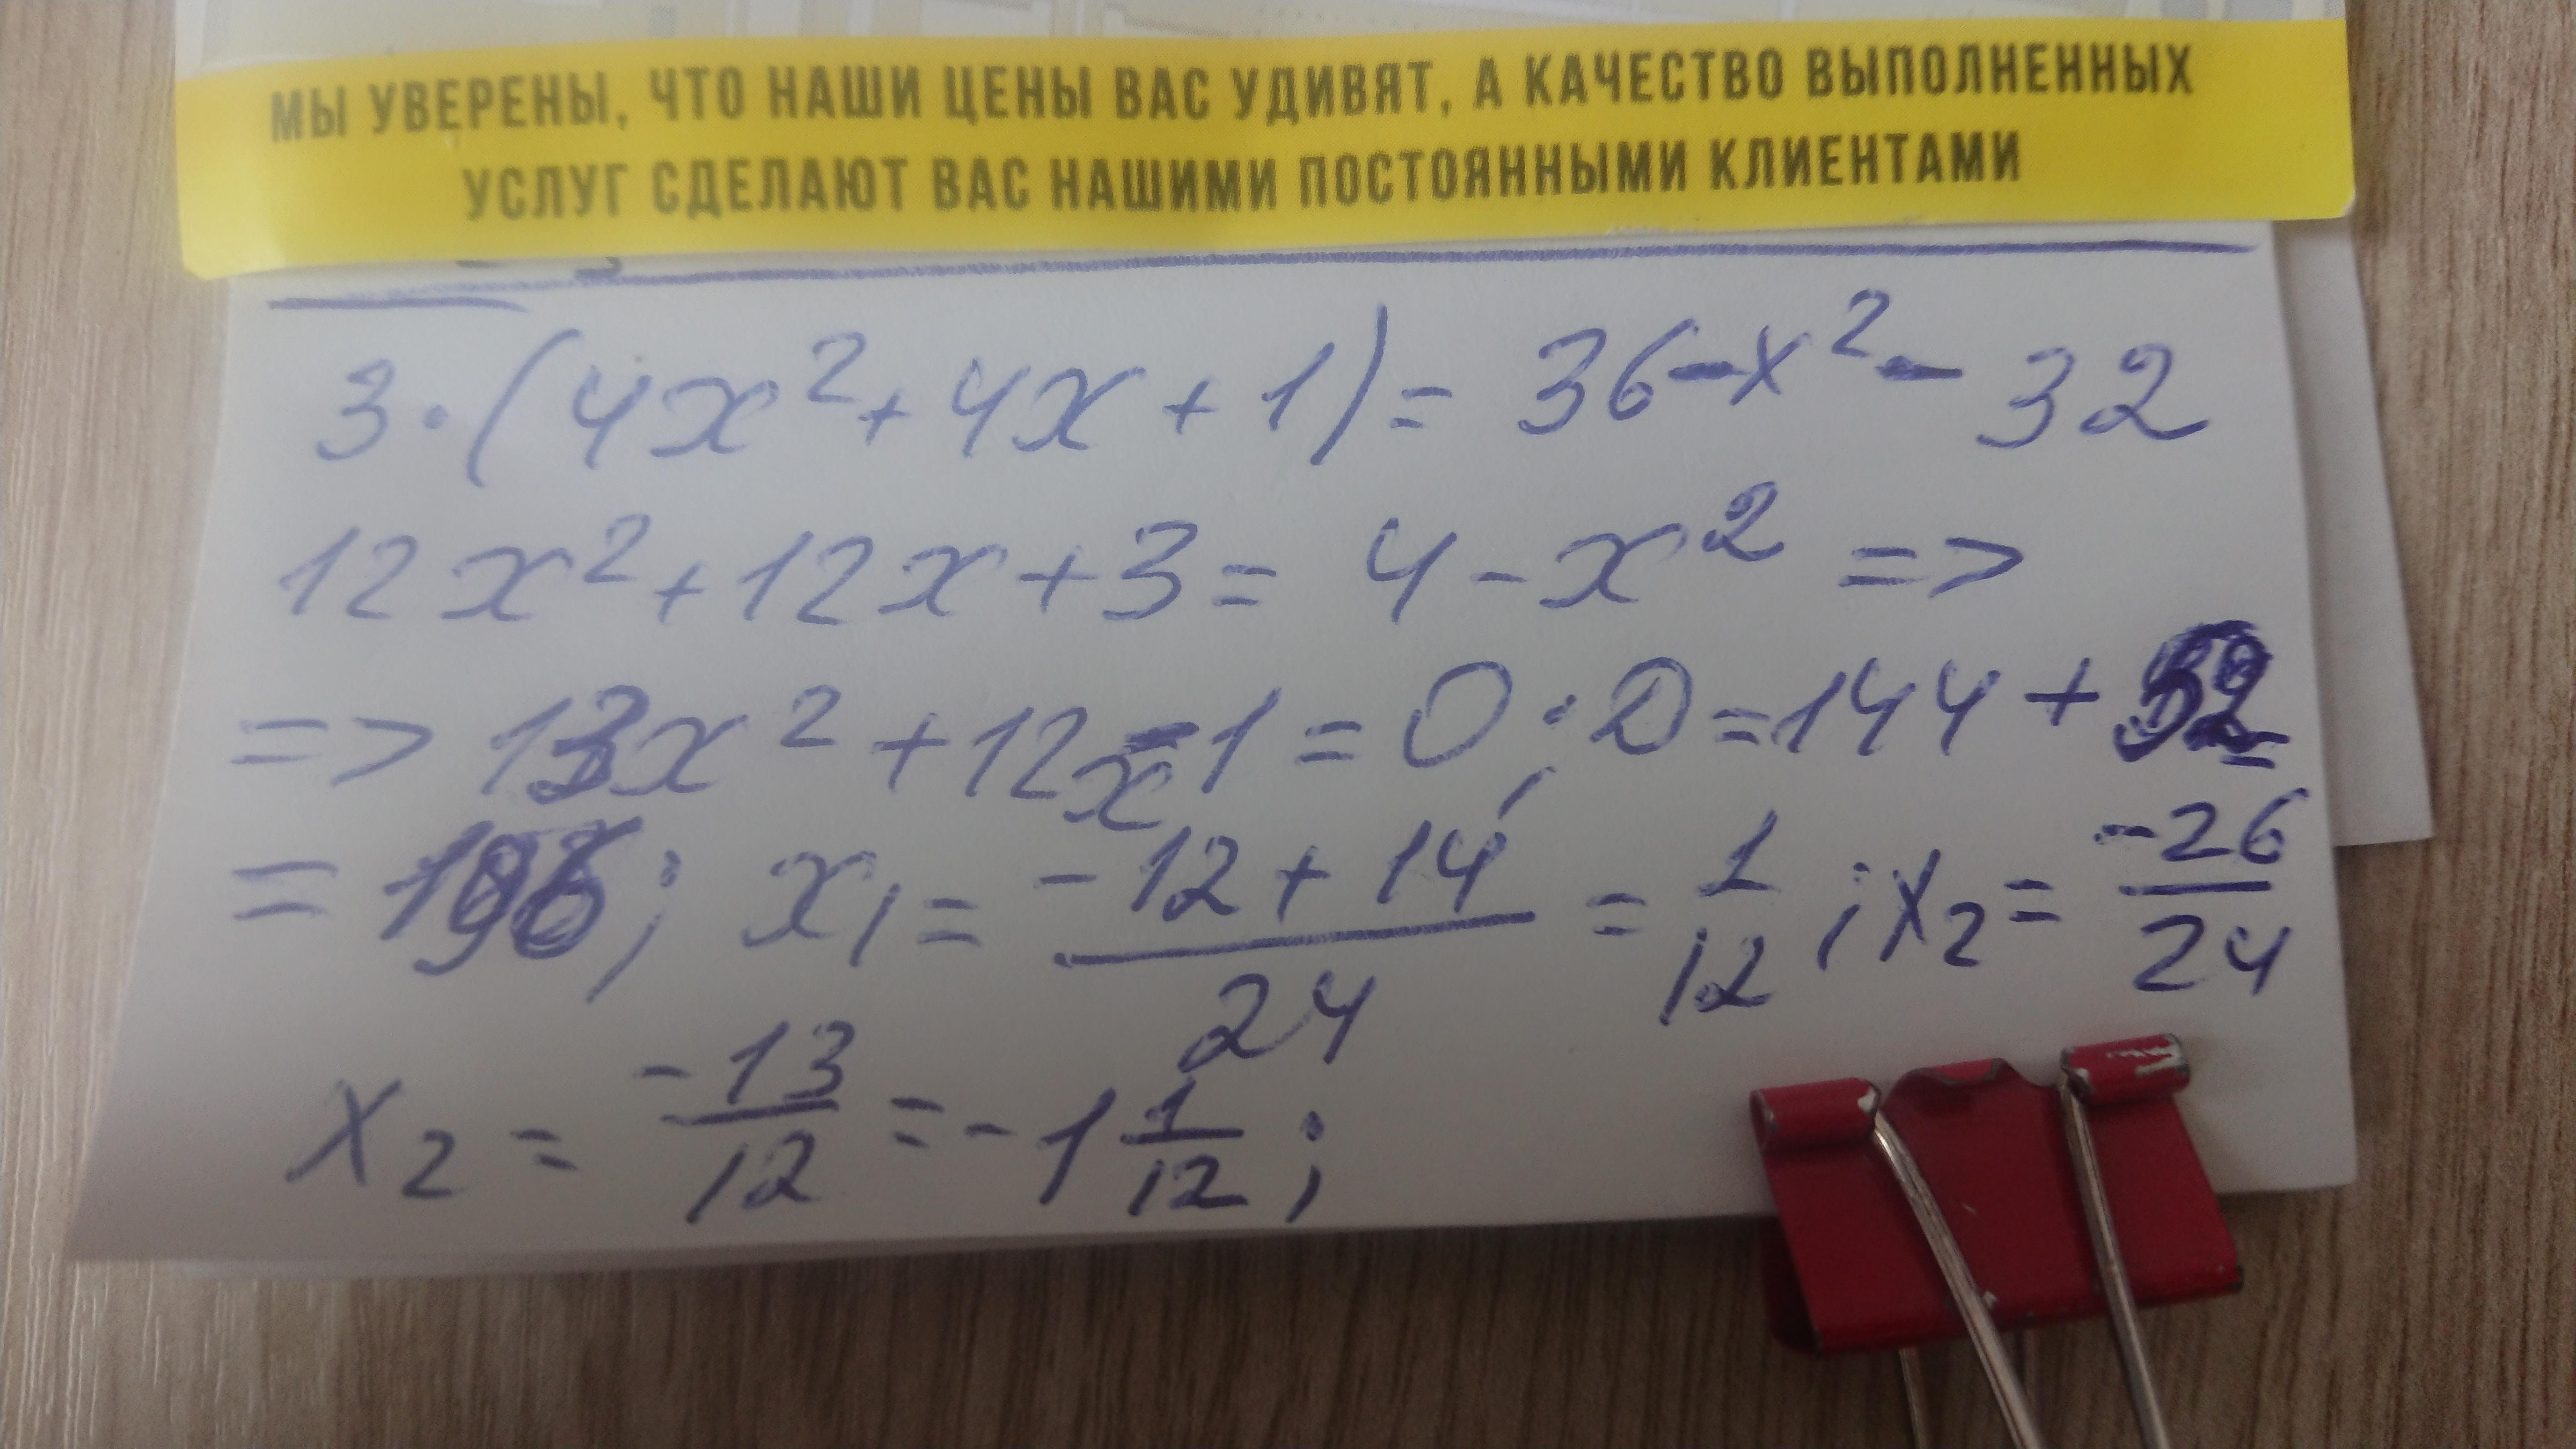 МЫ УВЕРЕНЫ, ЧТО НАШИ ЦЕНЫ ВАС УДИВЯТ, А КАЧЕСТВО ВЫПОЛНЕННЫХ
УСЛУГ СДЕЛАЮТ ВАС НАШИМИ ПОСТОЯННЫМИ КЛИЕНТАМИ
3·(4x²+4x+1)=36-x²-32
12x²+12x+3=4-x² =>
=> 13x²+12x-1=0; D=144+52
=196; x₁=(-12+14)/24=1/12; x₂=-26/24
x₂=-13/12=-1 1/12;